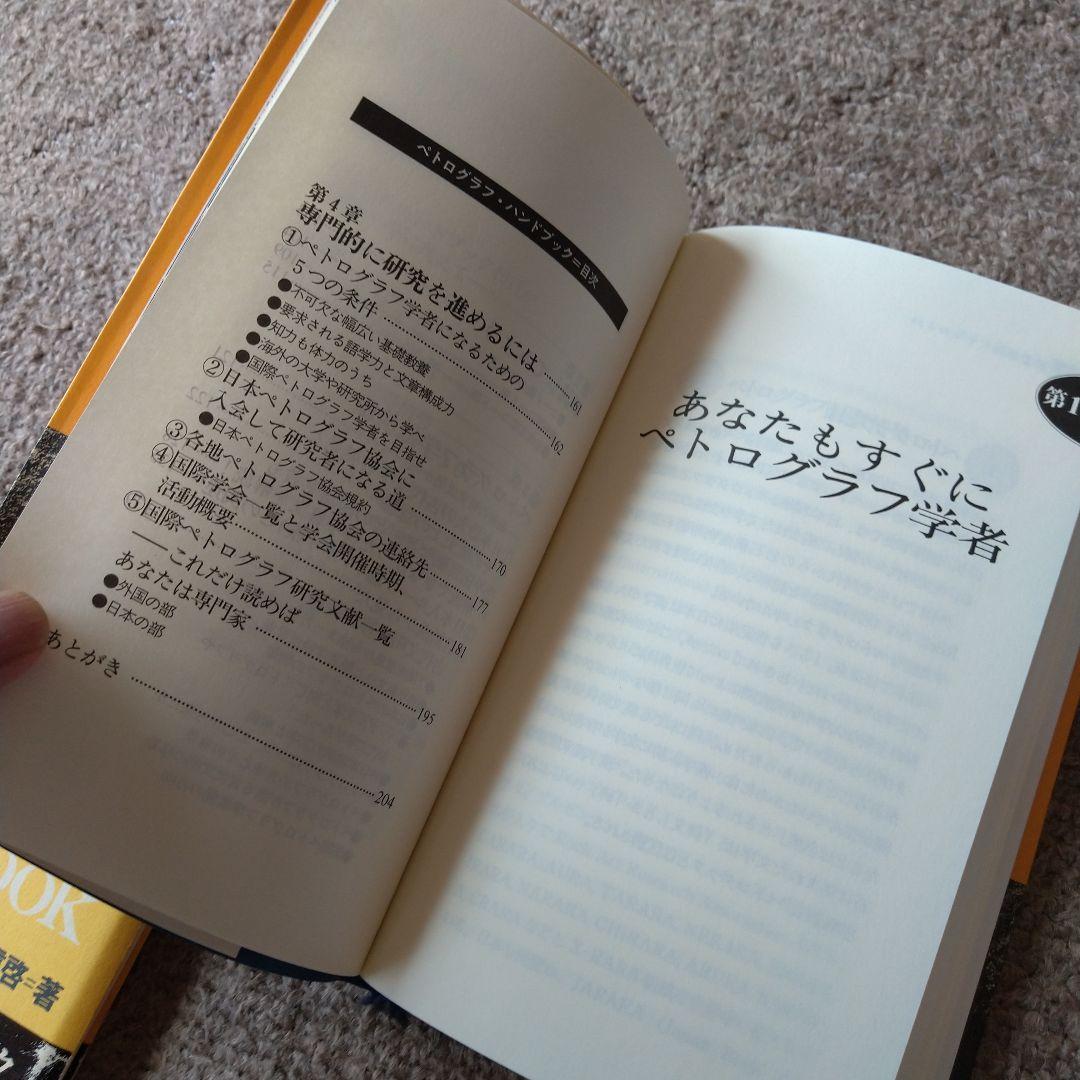 ペトログラフ・ハンドブック=目次
第4章
専門的に研究を進めるには……161
①ペトログラフ学者になるための
5つの条件……162
●不可欠な幅広い基礎教養
●要求される語学力と文章構成力
●知力も体力のうち
●海外の大学や研究所から学べ
●国際ペトログラフ学者を目指せ
②日本ペトログラフ協会に
入会して研究者になる道……170
●日本ペトログラフ協会規約
③各地ペトログラフ協会の連絡先……177
④国際学会一覧と学会開催時期、
活動概要……181
⑤国際ペトログラフ研究文献一覧
──これだけ読めば
あなたは専門家……195
●外国の部
●日本の部
あとがき……204
第1
あなたもすぐに
ペトログラフ学者
OOK
啓=著